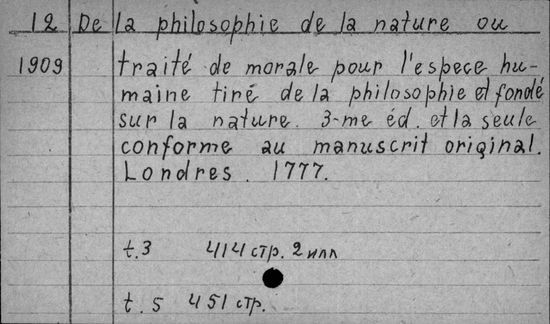 12 De la philosophie de la nature ou
1909 traité de morale pour l'espece hu-
maine tiré de la philosophie et fondé
sur la nature. 3-me éd. et la seule
conforme au manuscrit original.
Londres. 1777.
t.3 414 стр. 2 илл
t. 5 451 стр.